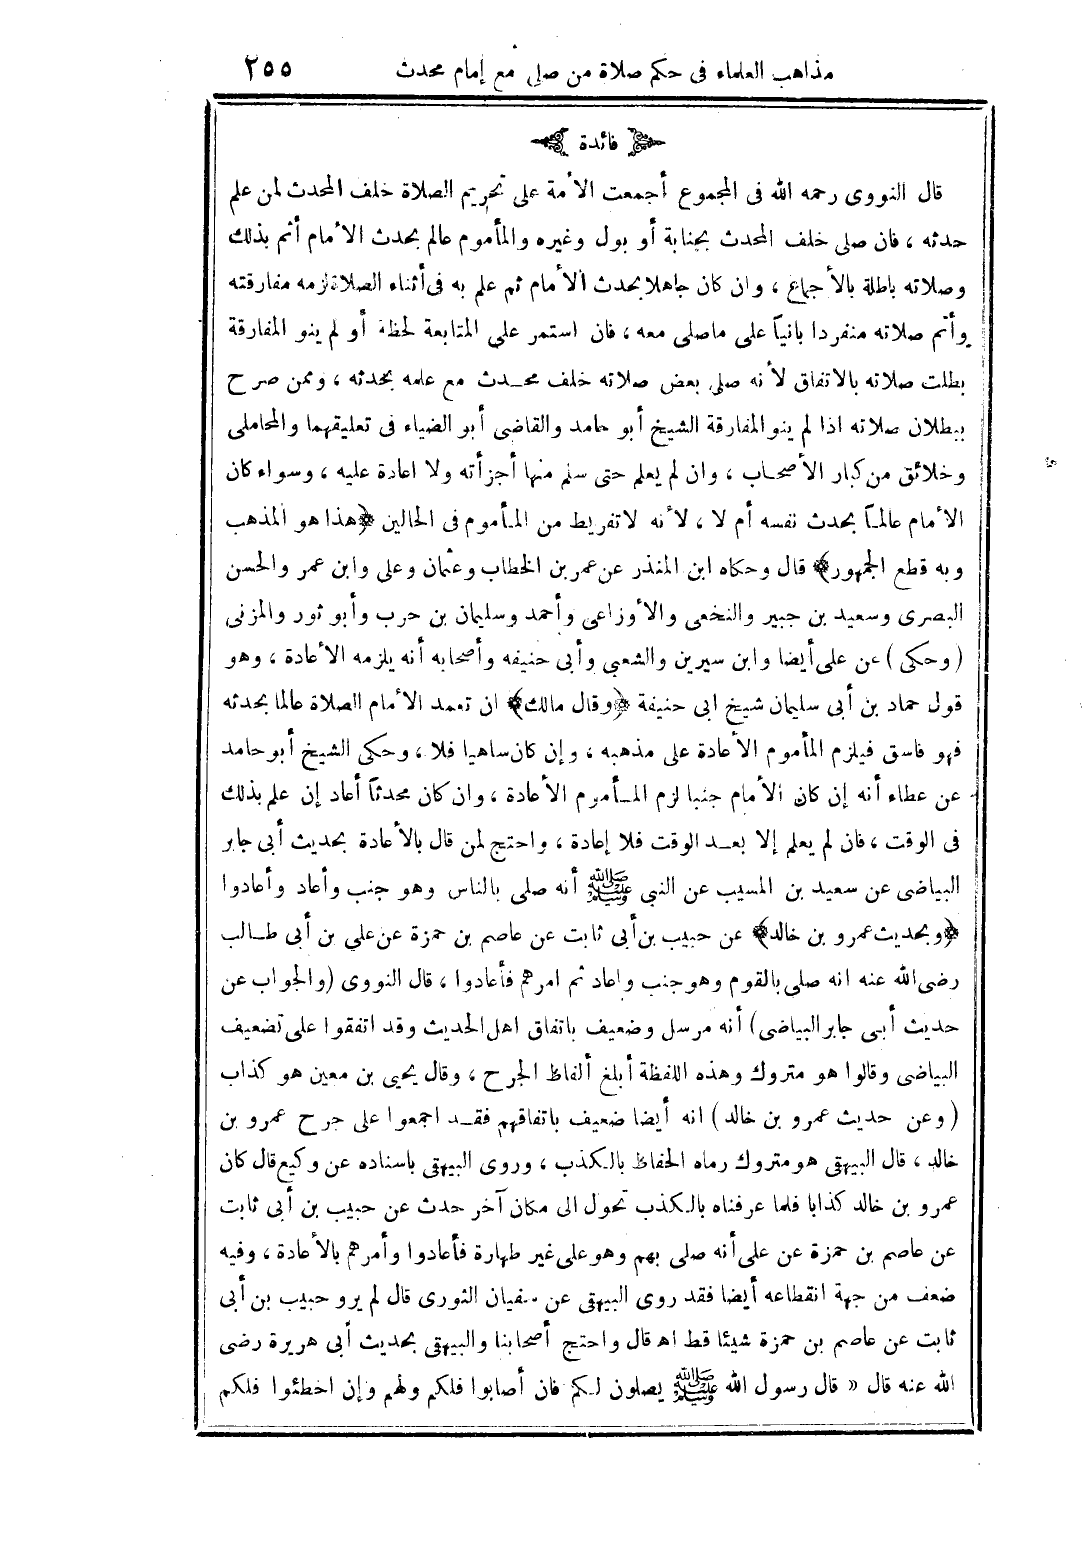 مذاهب العلماء فى حكم صلاة من صلى مع إمام محدث ٢٥٥
فائدة
قال النووى رحمه الله فى المجموع أجمعت الأمة على تحريم الصلاة خلف المحدث لمن علم
حدثه ، فان صلى خلف المحدث بجنابة أو بول وغيره والمأموم عالم بحدث الأمام أثم بذلك
وصلاته باطلة بالأجماع ، وان كان جاهلا بحدث الأمام ثم علم به فى أثناء الصلاة لزمه مفارقته
وأتم صلاته منفردا بانياً على ماصلى معه ، فان استمر على المتابعة لحظة أو لم ينو المفارقة
بطلت صلاته بالاتفاق لأنه صلى بعض صلاته خلف محـدث مع علمه بحدثه ، وممن صرح
ببطلان صلاته اذا لم ينو المفارقة الشيخ أبو حامد والقاضى أبو الضياء فى تعليقهما والمحاملى
وخلائق من كبار الأصحاب ، وان لم يعلم حتى سلم منها أجزأته ولا اعادة عليه ، وسواء كان
الأمام عالمـاً بحدث نفسه أم لا ، لأنه لا تفريط من المـأموم فى الحالين ﴿هذا هو المذهب
وبه قطع الجمهور﴾ قال وحكاه ابن المنذر عن عمر بن الخطاب وعثمان وعلى وابن عمر والحسن
البصرى وسعيد بن جبير والنخعى والأوزاعى وأحمد وسليمان بن حرب وأبو ثور والمزنى
(وحكى) عن على أيضا وابن سيرين والشعبى وأبى حنيفه وأصحابه أنه يلزمه الأعادة ، وهو
قول حماد بن أبى سليمان شيخ ابى حنيفة ﴿وقال مالك﴾ ان تعمد الأمام الصلاة عالما بحدثه
فهو فاسق فيلزم المأموم الأعادة على مذهبه ، وإن كان ساهيا فلا ، وحكى الشيخ أبو حامد
عن عطاء أنه إن كان الأمام جنبا لزم المـأموم الأعادة ، وان كان محدثاً أعاد إن علم بذلك
فى الوقت ، فان لم يعلم إلا بعـد الوقت فلا إعادة ، واحتج لمن قال بالأعادة بحديث أبى جابر
البياضى عن سعيد بن المسيب عن النبى ﷺ أنه صلى بالناس وهو جنب وأعاد وأعادوا
﴿وبحديث عمرو بن خالد﴾ عن حبيب بن أبى ثابت عن عاصم بن حمزة عن على بن أبى طـالب
رضى الله عنه انه صلى بالقوم وهو جنب واعاد ثم امرهم فأعادوا ، قال النووى (والجواب عن
حديث أبى جابر البياضى) أنه مرسل وضعيف باتفاق اهل الحديث وقد اتفقوا على تضعيف
البياضى وقالوا هو متروك وهذه اللفظة أبلغ ألفاظ الجرح ، وقال يحيى بن معين هو كذاب
(وعن حديث عمرو بن خالد) انه أيضا ضعيف باتفاقهم فقـد اجمعوا على جرح عمرو بن
خالد ، قال البيهقى هو متروك رماه الحفاظ بالكذب ، وروى البيهقى باسناده عن وكيع قال كان
عمرو بن خالد كذابا فلما عرفناه بالكذب تحول الى مكان آخر حدث عن حبيب بن أبى ثابت
عن عاصم بن حمزة عن على أنه صلى بهم وهو على غير طهارة فأعادوا وأمرهم بالأعادة ، وفيه
ضعف من جهة انقطاعه أيضا فقد روى البيهقى عن سفيان الثورى قال لم يرو حبيب بن أبى
ثابت عن عاصم بن حمزة شيئا قط اه قال واحتج أصحابنا والبيهقى بحديث أبى هريرة رضى
الله عنه قال « قال رسول الله ﷺ يصلون لكم فان أصابوا فلكم ولهم وإن اخطئوا فلكم